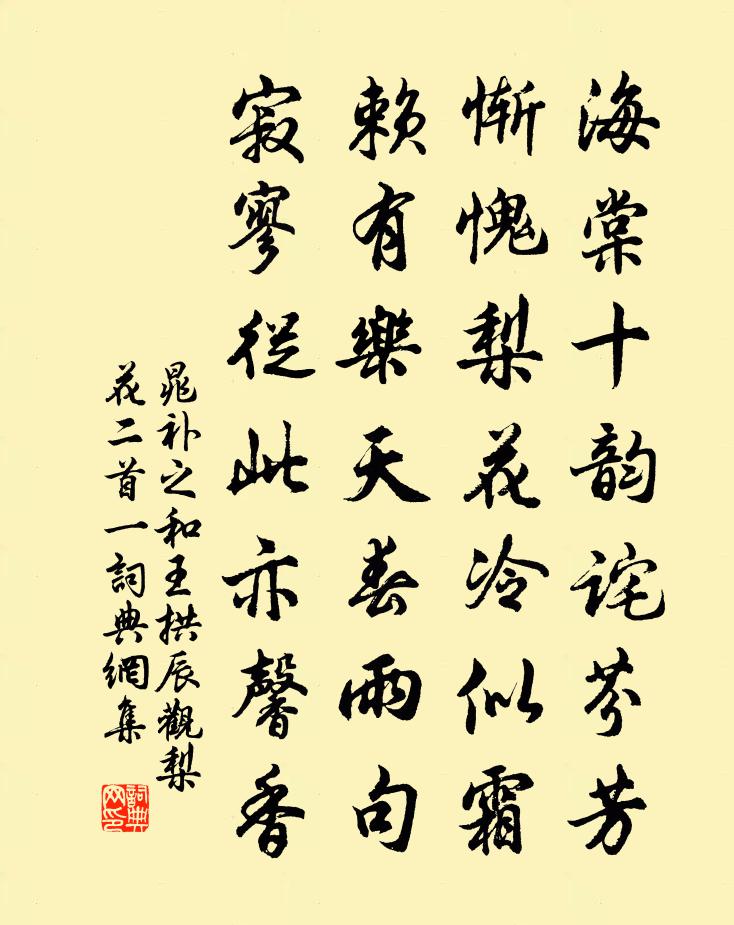 海棠十韵詫芬芳
慚愧梨花冷似霜
賴有樂天春雨句
寂寥從此亦馨香
晁补之和王拱辰觀梨
花二首一詞典網集
詞典
网印